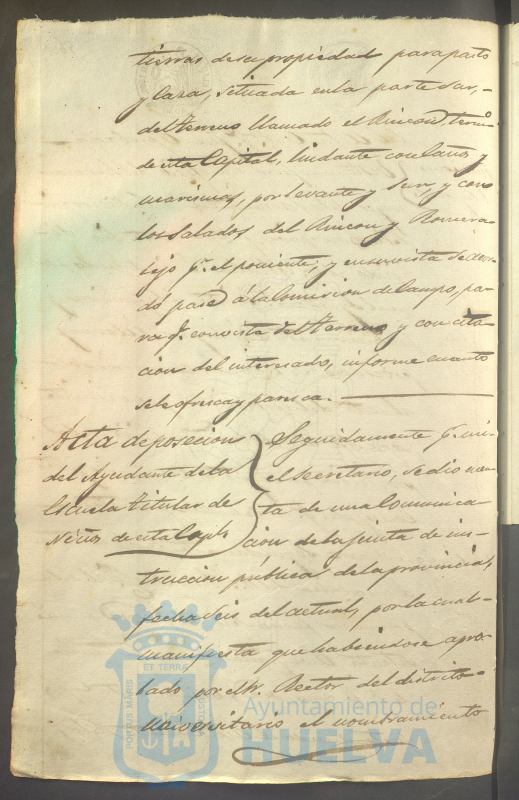 tierras de su propiedad para pasto
y caza, situada en la parte Sur,
del terreno llamado el Rincon, termo
de esta Capital, lindante con Caños y
marismas, por Levante y Sur, y con
los Salados del Rincon y Romera
lejo pr. el poniente; y en su vista se acor
dó pase á la Comision de Campo, pa
ra qe. con vista del terreno y con cita
cion del interesado, informe cuanto
se le ofrezca y paresca.
Acta de posecion
del Ayudante de la
Escuela titular de
Niños de esta Capl.
Seguidamente pr. mi
el Secretario, se dio cuen
ta de una Comunica
cion de la junta de ins
truccion pública de la provincia,
fecha seis del actual, por la cual
manifiesta que habiendose apro
bado por el Sr. Rector del distrito
Universitario el nombramiento
PORTUS MARIS ET TERRÆ CUSTODIA
Ayuntamiento de
HUELVA